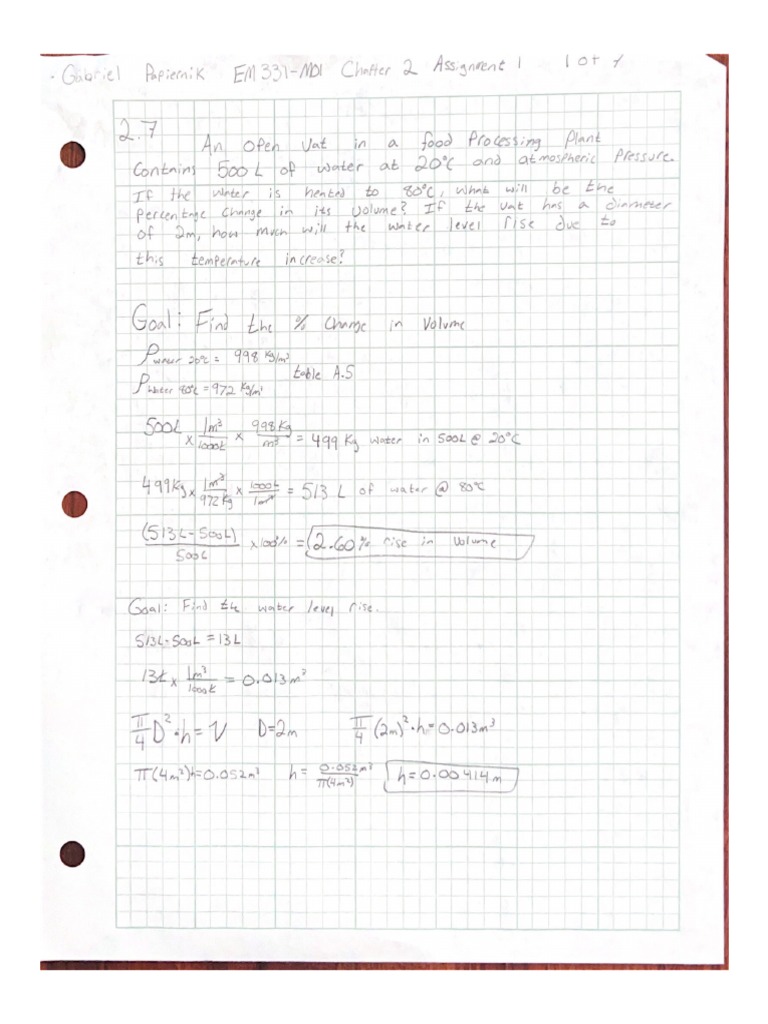 Gabriel Papiernik EM 331-M01 Chapter 2 Assignment 1 1 of 7
2.7
An open vat in a food processing plant
contains 500 L of water at 20°C and atmospheric pressure.
If the water is heated to 80°C, what will be the
percentage change in its volume? If the vat has a diameter
of 2m, how much will the water level rise due to
this temperature increase?
Goal: Find the % change in volume
ρ water 20°C = 998 kg/m³
table A.5
ρ water 80°C = 972 kg/m³
500L × 1m³/1000L × 998 kg/m³ = 499 kg water in 500L @ 20°C
499kg × 1m³/972kg × 1000L/1m³ = 513 L of water @ 80°C
(513L-500L)/500L × 100% = 2.60% rise in volume
Goal: Find the water level rise.
513L-500L = 13L
13L × 1m³/1000L = 0.013m³
π/4 D²·h = V D=2m π/4 (2m)²·h=0.013m³
π(4m²)h=0.052m³ h= 0.052m³/π(4m²) h=0.00414m